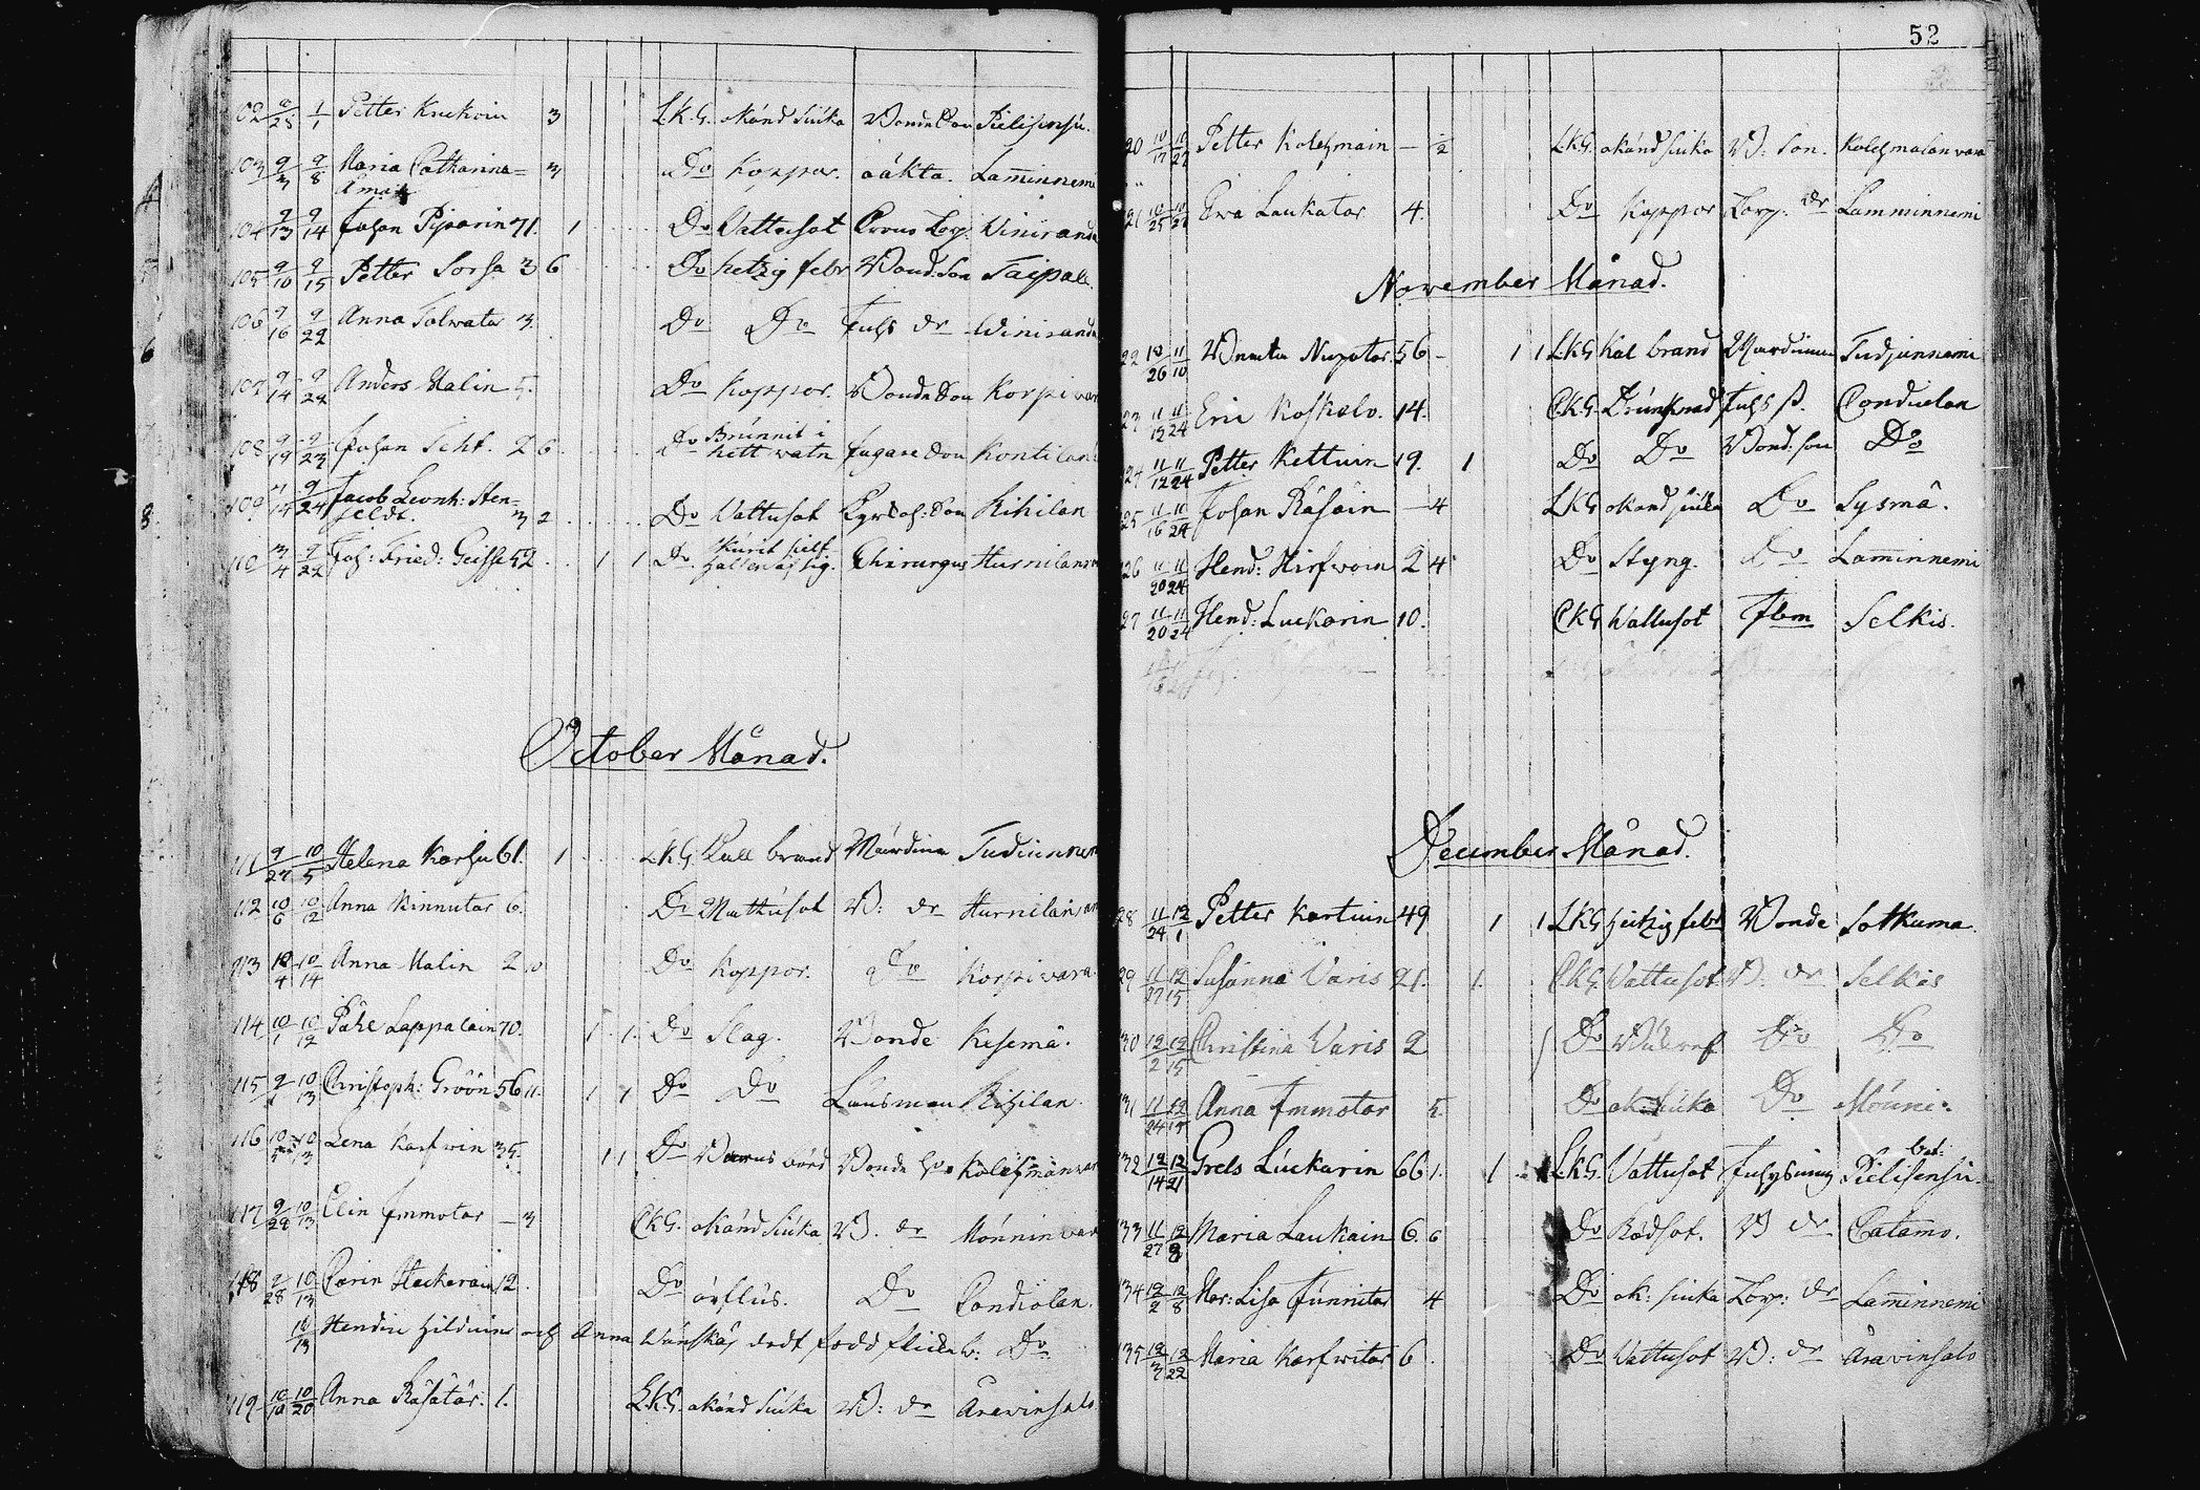 102 9/25 1/1 Petter Krukoin 3 L.K.G. okänd siuka Bonde Son Pielisensu.
103 9/3 9/8 Maria Catharina 3 Do Koppor. oäkta. Laminnemi
104 9/13 9/14 Johan Piparin 71. 1 Do Vattusot Torp. Winiranda
105 9/10 9/15 Petter Sorsa 3 6 Do hetzig febr Bond: Son Taipale.
106 9/16 9/22 Anna Tolwatar 3. Do Do Inhs dr Winiranda
107 9/14 9/22 Anders Malin 5. Do Koppor. Bonde Son Korpivar
108 9/19 9/23 Johan Teht. 2 6 Do Brunnit i hett watn Son Kontilan
109 9/14 9/24 Jacob Leonh: Sten=
feldt. 3 2 Do Vattusot Son Rihilan
110 Joh: Fried: Geisse 52 1 1 Do Skurit sielf halsen af sig. Chirurgus Hurnilanv
October Månad.
111 9/27 10/5 Helena Karhu 61. 1 L.K.G. Kall brand Tudiunnem
112 10/6 10/12 Anna Kinnutar 6. Do Vattusot B: dr Hurnilan
113 10/4 10/14 Anna Malin 2 10 Do Koppor. Do Korpivara
114 10/1 10/12 Påhl Lappalain 70. 1 1. Do Slag. Bonde Kesemä.
115 10/13 Christoph: Gröön 56 11. 1 1 Do Do Länsman Rihilan.
116 10/13 Lena Karfwin 35. 1 1 Do Barns börd Bonde Kolehmanvar
117 9/28 10/13 Elin Immotar — 3 C.K.G. okänd Siuka B. dr Mönninvar
118 9/28 10/13 Carin Hackarain 12. Do Do Contiolan.
10/13 och Anna dödt född flicka b: Do
119 10/10 10/20 Anna Räsätär. 1. L.K.G. okänd Siuka B: dr Aravinsalo
52
20 10/17 10/27 Petter Kolehmain — 1/2 L.K.G. okänd siuka B: Son. Kolehmalan vara
21 10/25 10/27 Ewa Laukatar 4. Do Koppor Torp: dr Lamminnemi
November Månad.
22 10/26 11/10 56 — 1 1 L.K.G. Kal brand Tudjunnemi
23 11/12 11/24 Eric Koskelo. 14. C.K.G. Drunknad Inhs Contiolan
24 11/12 11/24 Petter Kettuin 19. 1 Do Do Bond: son Do
25 11/16 11/24 Johan Räsäin — 4 L.K.G. okänd siuka Do Sysmä.
26 11/20 11/24 Hend: Hirfwoin 2 4 Do Styng. Do Laminnemi
27 11/20 11/24 Hend: Luckarin 10. C.K.G. Vattusot Ibm Selkis.
December Månad.
28 11/24 12/1 Petter Kortuin 49 1 1 L.K.G. heitzig febr Bonde Sotkuma.
29 11/27 12/15 Susanna Varis 21. 1. C.K.G. Vattusot B: dr Selkis
30 12/2 12/15 Christina Varis 2 Do Do Do
31 11/24 12/15 Anna Immotar 5. Do ok. Siuka Do Mönni.
32 12/14 12/21 Grels Luckarin 66 1. 1 L.K.G. Vattusot Inhysning Pielisensu.
33 11/27 12/8 Maria Laukain 6. 6 Do Rödsot. B dr Catamo.
34 12/2 12/8 Mar: Lisa Junnitar 4 Do ok: siuka Torp: dr Laminnemi
35 12/7 12/22 Maria Karfwitar 6. Do Vattusot B: dr Aravinsalo